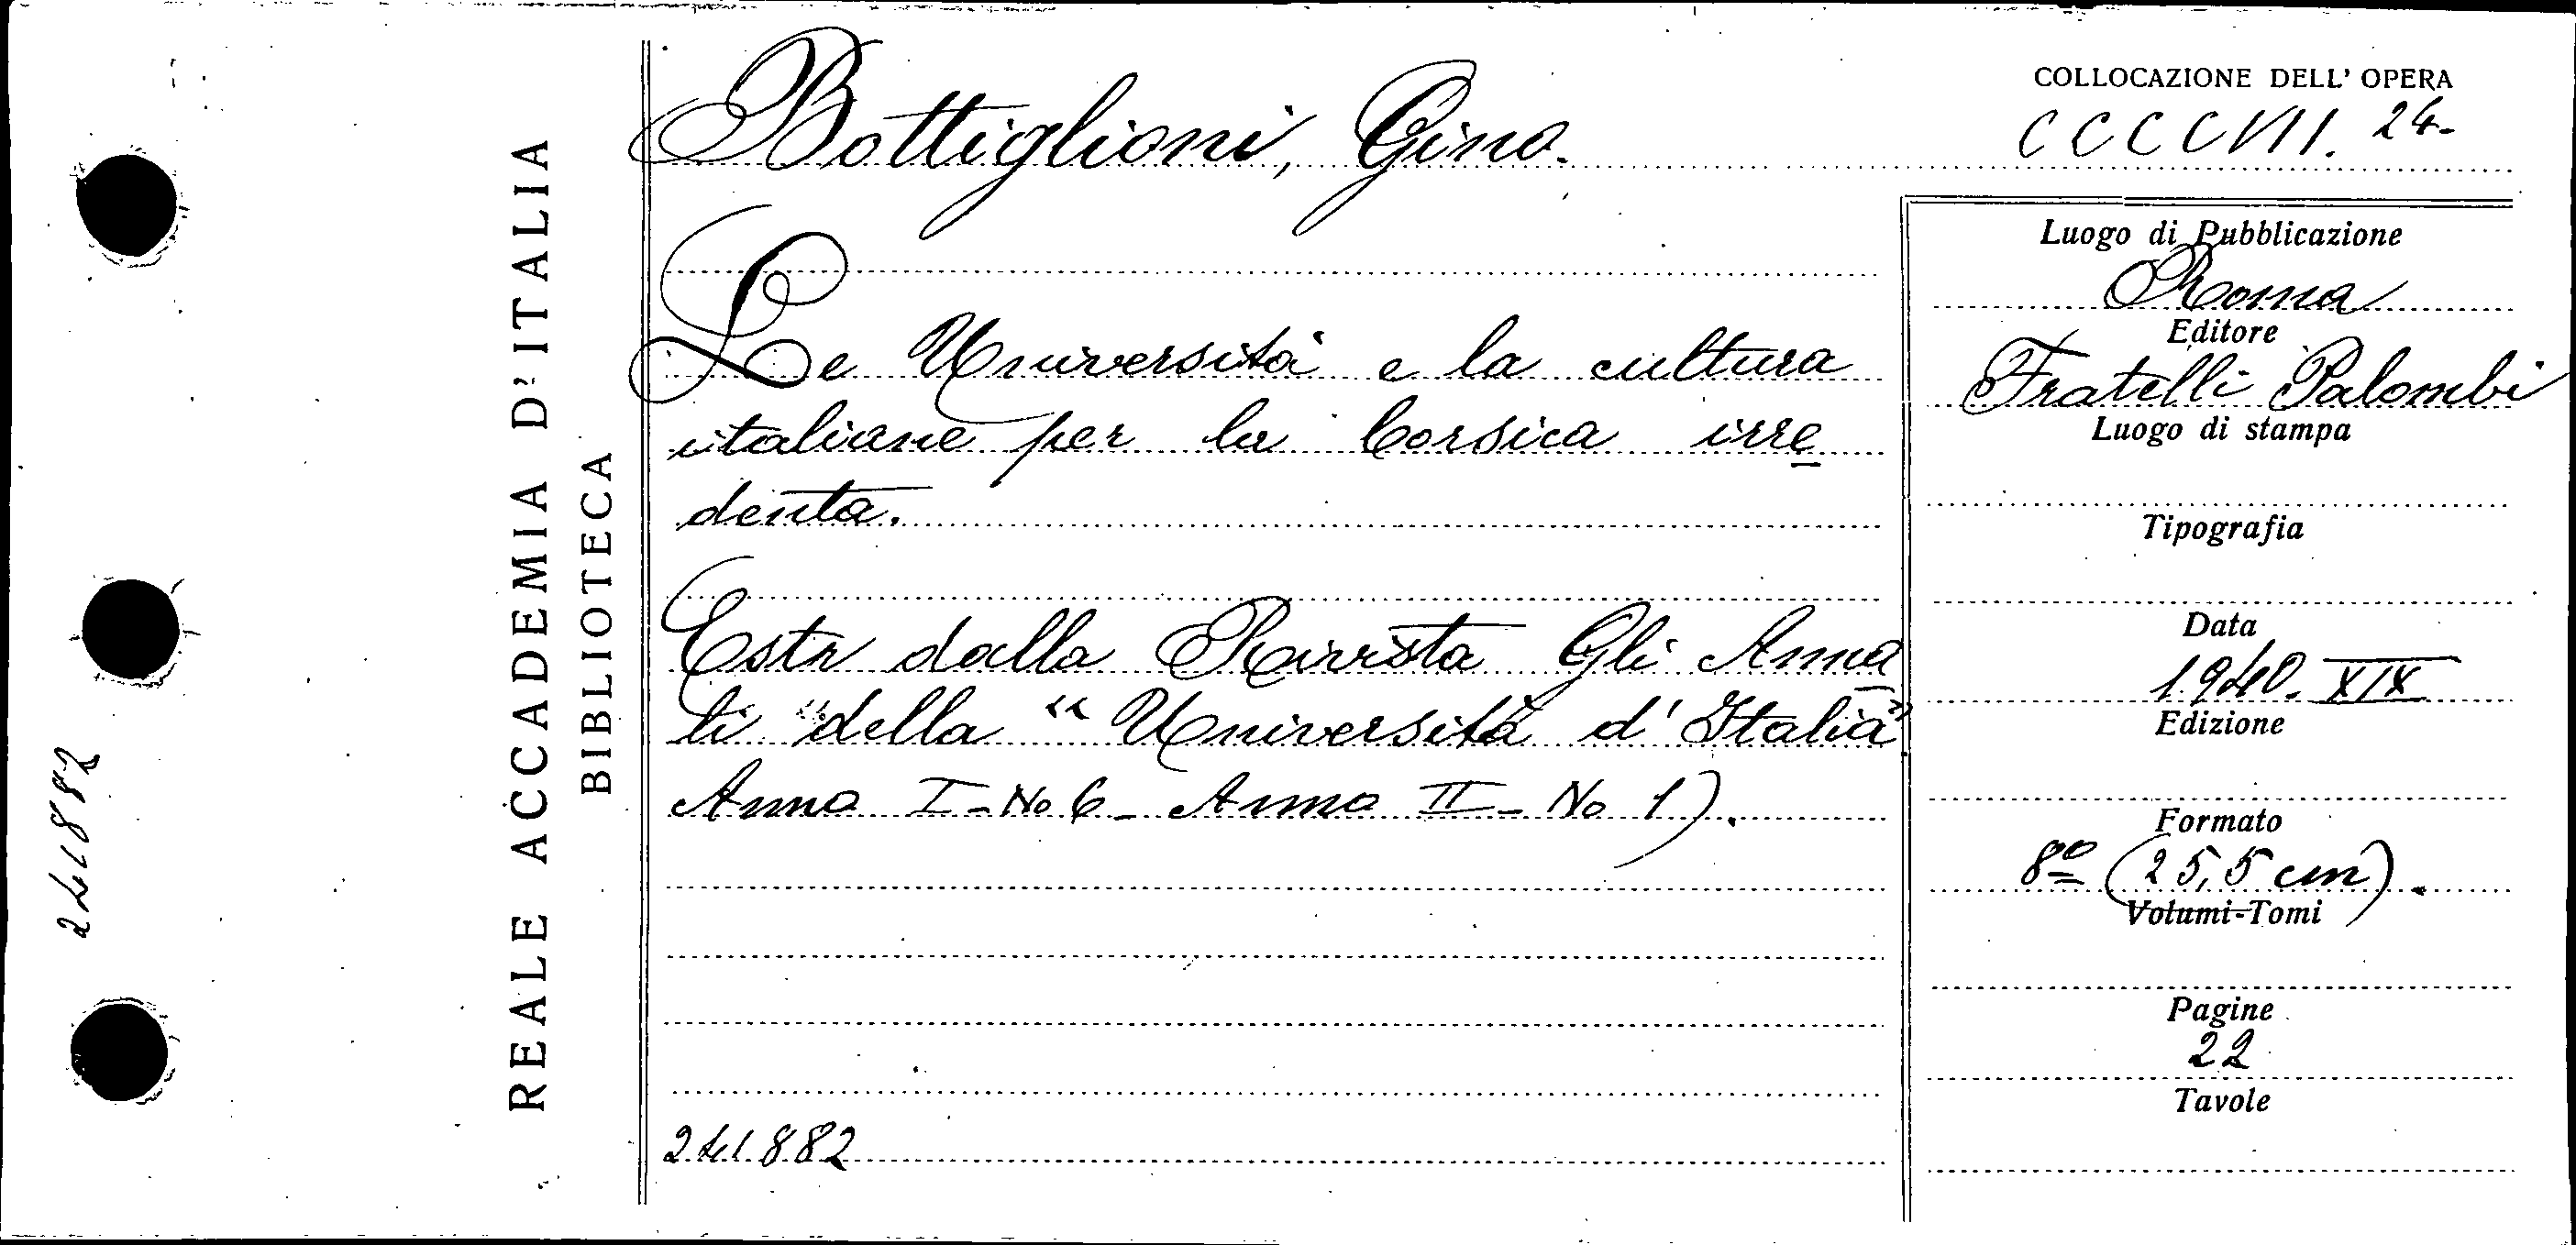 REALE ACCADEMIA D'ITALIA
BIBLIOTECA
241882
Bottiglioni, Gino.
Le Università e la cultura
italiane per la Corsica irre
denta.
Estr dalla Rivista Gli Anna
li "della "Università d'Italia"
Anno I - No 6 - Anno II - No 1).
241882
COLLOCAZIONE DELL' OPERA
CCCCVII. 24-
Luogo di Pubblicazione
Roma
Editore
Fratelli Palombi
Luogo di stampa
Tipografia
Data
1940. XIX
Edizione
Formato
8º (25,5 cm).
Volumi-Tomi
Pagine
22
Tavole